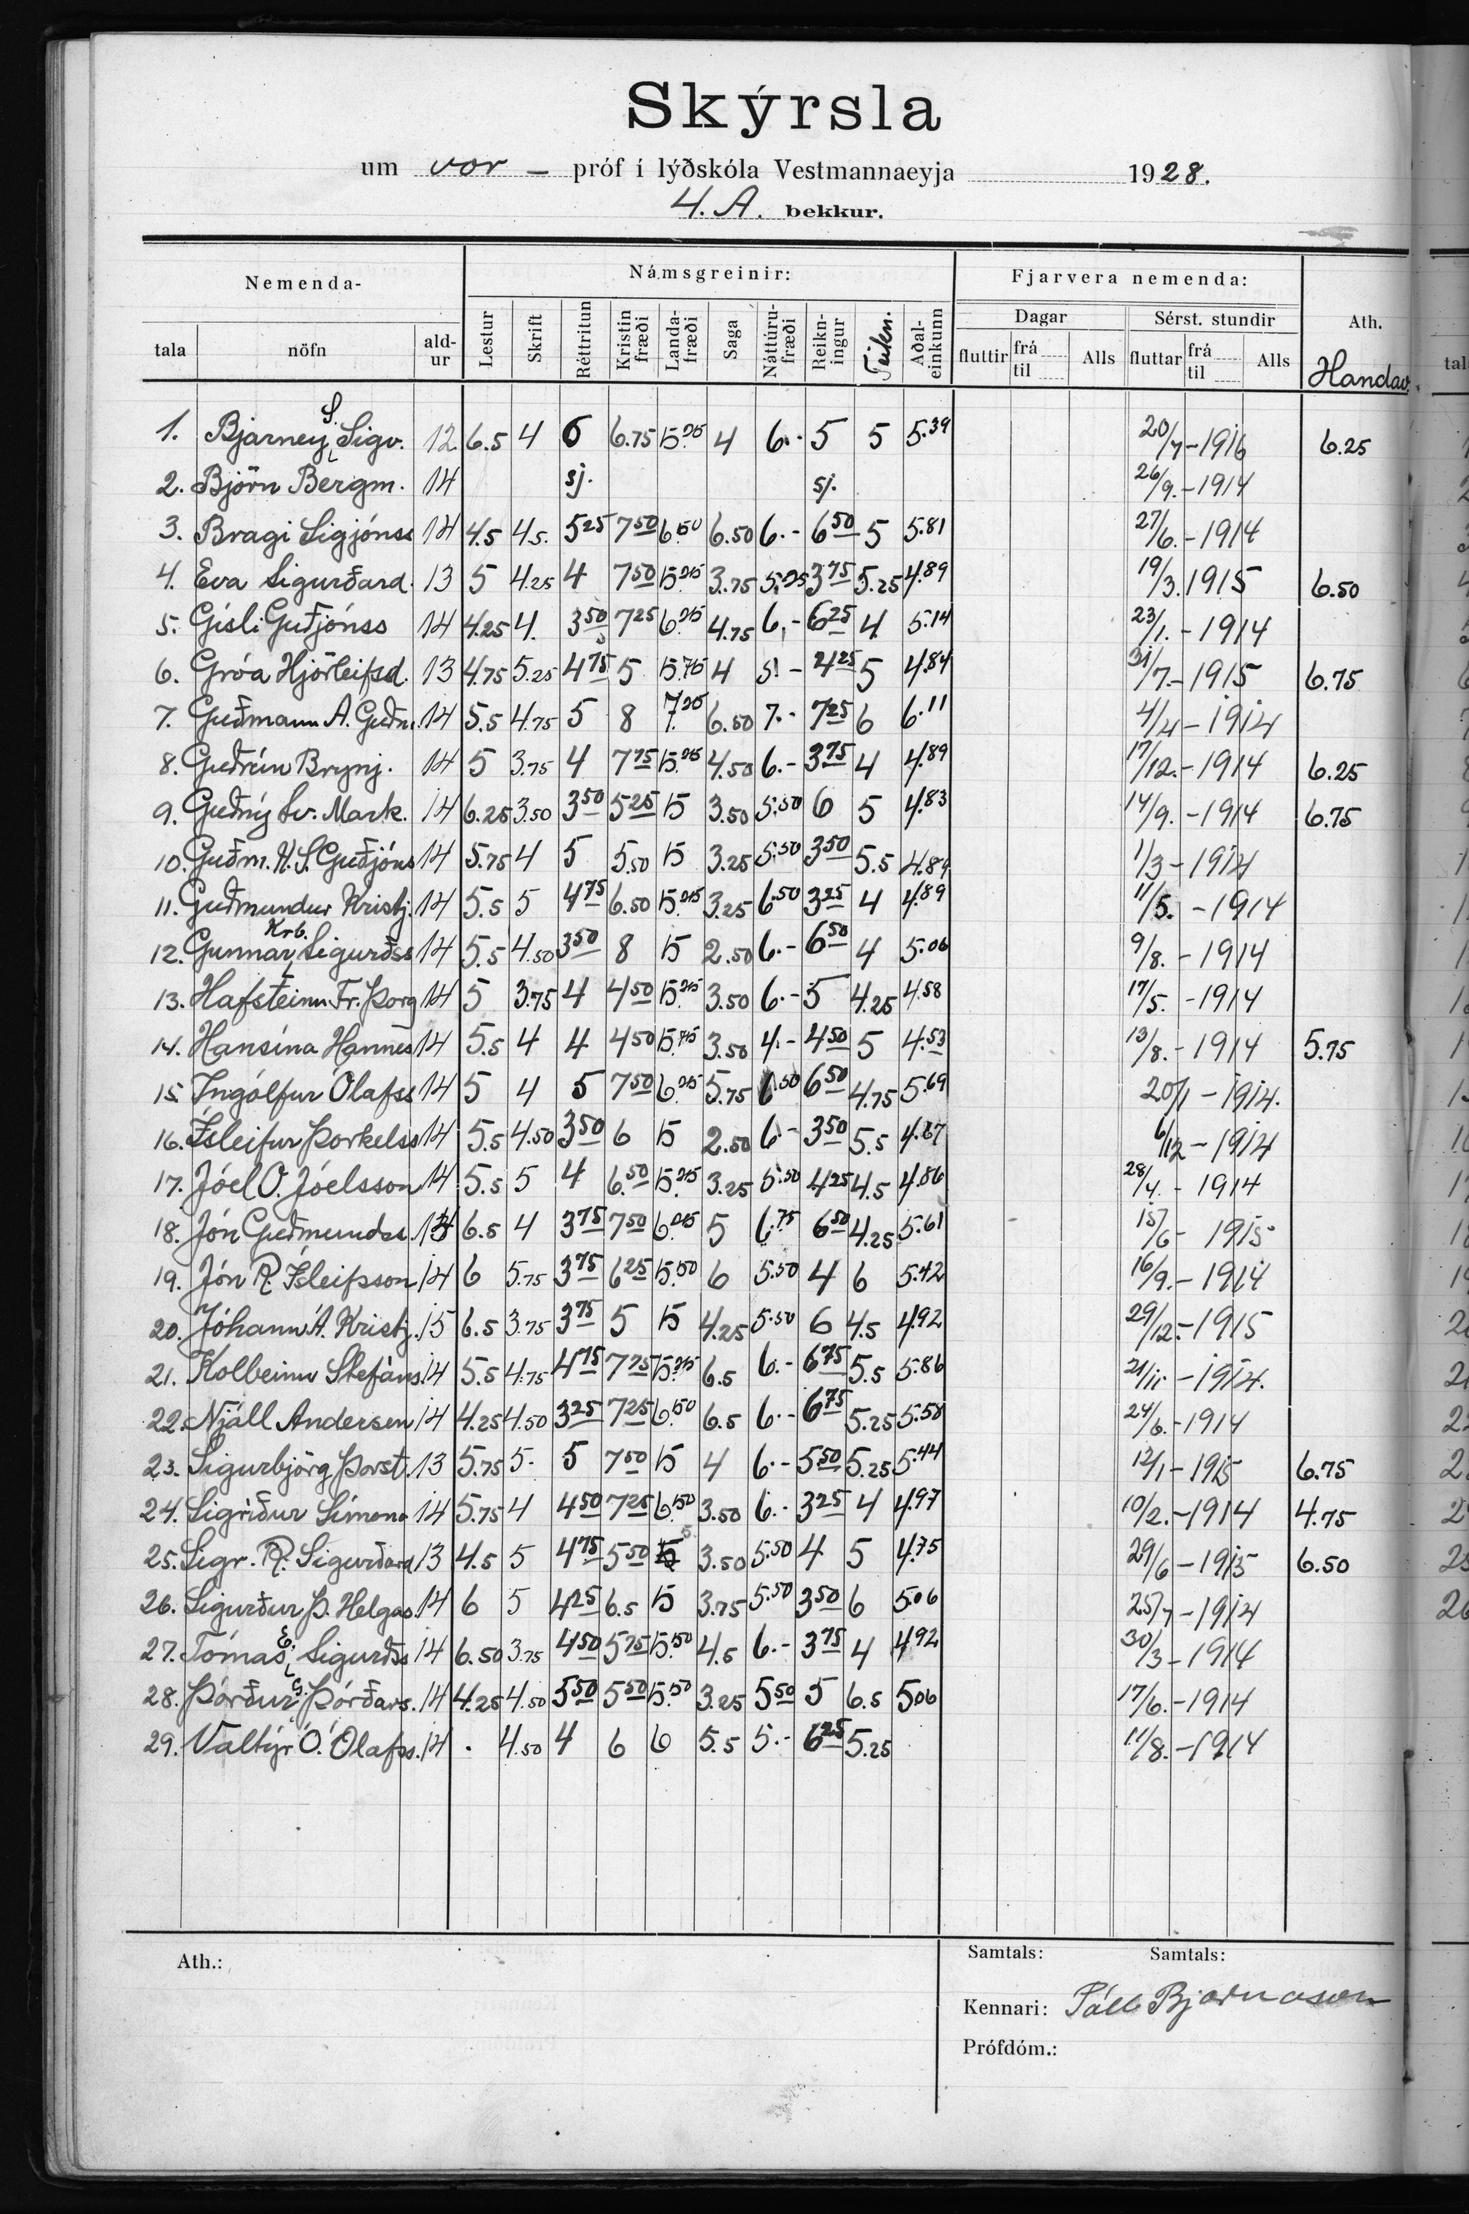 Skýrsla
um vor – próf í lýðskóla Vestmannaeyja 1928.
4. A. bekkur.
Nemenda- Námsgreinir: Fjarvera nemenda: Ath.
tala nöfn ald-ur Lestur Skrift Réttritun Kristin fræði Landa-fræði Saga Náttúru-fræði Reikn-ingur Teikn. Aðal-einkunn Dagar fluttir frá til Alls Sérst. stundir fluttar frá til Alls Handav.
1. Bjarney S. Sigv. 12 6.5 4 6 6.75 5.25 4 6.- 5 5 5.39 20/7-1916 6.25
2. Björn Bergm. 14 sj. sj. 26/9.-1914
3. Bragi Sigjónss 14 4.5 4.5. 5 25 7 50 6.50 6.50 6.- 6 50 5 5.81 27/6.-1914
4. Eva Sigurðard. 13 5 4.25 4 7 50 5.25 3.75 5.25 3 75 5.25 4.89 19/3.1915 6.50
5. Gísli Guðjónss 14 4.25 4. 3 50 7 25 6.25 4.75 6.- 6 25 4 5.14 23/1.-1914
6. Gróa Hjörleifsd. 13 4.75 5.25 4 75 5 5.75 4 5.- 4 25 5 4.84 31/7.-1915 6.75
7. Guðmann A. Guðm. 14 5.5 4.75 5 8 7.25 6.50 7.- 7 25 6 6.11 4/4-1914
8. Guðrún Brynj. 14 5 3.75 4 7 75 5.25 4.50 6.- 3 75 4 4.89 17/12.-1914 6.25
9. Guðný Sv. Mark. 14 6.25 3.50 3 50 5 25 5 3.50 5.50 6 5 4.83 14/9.-1914 6.75
10. Guðm. K. S. Guðjóns 14 5.75 4 5 5.50 5 3.25 5.50 3 50 5.5 4.89 1/3-1914
11. Guðmundur Kristj. 14 5.5 5 4 75 6.50 5.25 3.25 6.50 3 25 4 4.89 11/5.-1914
12. Gunnar Krb. Sigurðss 14 5.5 4.50 3 50 8 5 2.50 6.- 6 50 4 5.06 9/8.-1914
13. Hafsteinn Fr. Þorg 14 5 3.75 4 4 50 5.25 3.50 6.- 5 4.25 4.58 17/5.-1914
14. Hansína Hannes 14 5.5 4 4 4 50 5.75 3.50 4.- 4 50 5 4.53 13/8.-1914 5.75
15. Ingólfur Ólafss 14 5 4 5 7 50 6.25 5.75 6.50 6 50 4.75 5.69 20/1-1914.
16. Ísleifur Þorkelss 14 5.5 4.50 3 50 6 5 2.50 6.- 3 50 5.5 4.67 6/12-1914
17. Jóel Ó. Jóelsson 14 5.5 5 4 6.50 5.25 3.25 5.50 4 25 4.5 4.86 28/4.-1914
18. Jón Guðmundss. 6.5 4 3 75 7 50 6.25 5 6.75 6 50 4.25 5.61 15/6-1915
19. Jón R. Ísleifsson 14 6 5.75 3 75 6 25 5.50 6 5.50 4 6 5.42 16/9.-1914
20. Jóhann Á. Kristj. 15 6.5 3.75 3 75 5 5 4.25 5.50 6 4.5 4.92 29/12.-1915
21. Kolbeinn Stefáns. 14 5.5 4.75 4 75 7 25 5.25 6.5 6.- 6 75 5.5 5.86 21/11-1914.
22. Njáll Andersen 14 4.25 4.50 3 25 7 25 6.50 6.5 6.- 6 75 5.25 5.58 24/6.-1914
23. Sigurbjörg Þorst. 13 5.75 5. 5 7 50 5 4 6.- 5 50 5.25 5.44 12/1-1915 6.75
24. Sigríður Símona 14 5.75 4 4 50 7 25 6.50 3.50 6.- 3 25 4 4.97 10/2.-1914 4.75
25. Sigr. R. Sigurðard 13 4.5 5 4 75 5 50 5 3.50 5.50 4 5 4.75 29/6-1915 6.50
26. Sigurður Þ. Helgas. 14 6 5 4 25 6.5 5 3.75 5.50 3 50 6 5.06 25/7-1914
27. Tómas E. Sigurðss 14 6.50 3.75 4 50 5 75 5.50 4.5 6.- 3 75 4 4.92 30/3-1914
28. Þórður G. Þórðars. 14 4.25 4.50 5 50 5 50 5.50 3.25 5 50 5 6.5 5 06 17/6.-1914
29. Valtýr Ó. Ólafss. 14 . 4.50 4 6 6 5.5 5.- 6 25 5.25 11/8.-1914
Ath.: Samtals: Samtals:
Kennari: Páll Bjarnason
Prófdóm.: